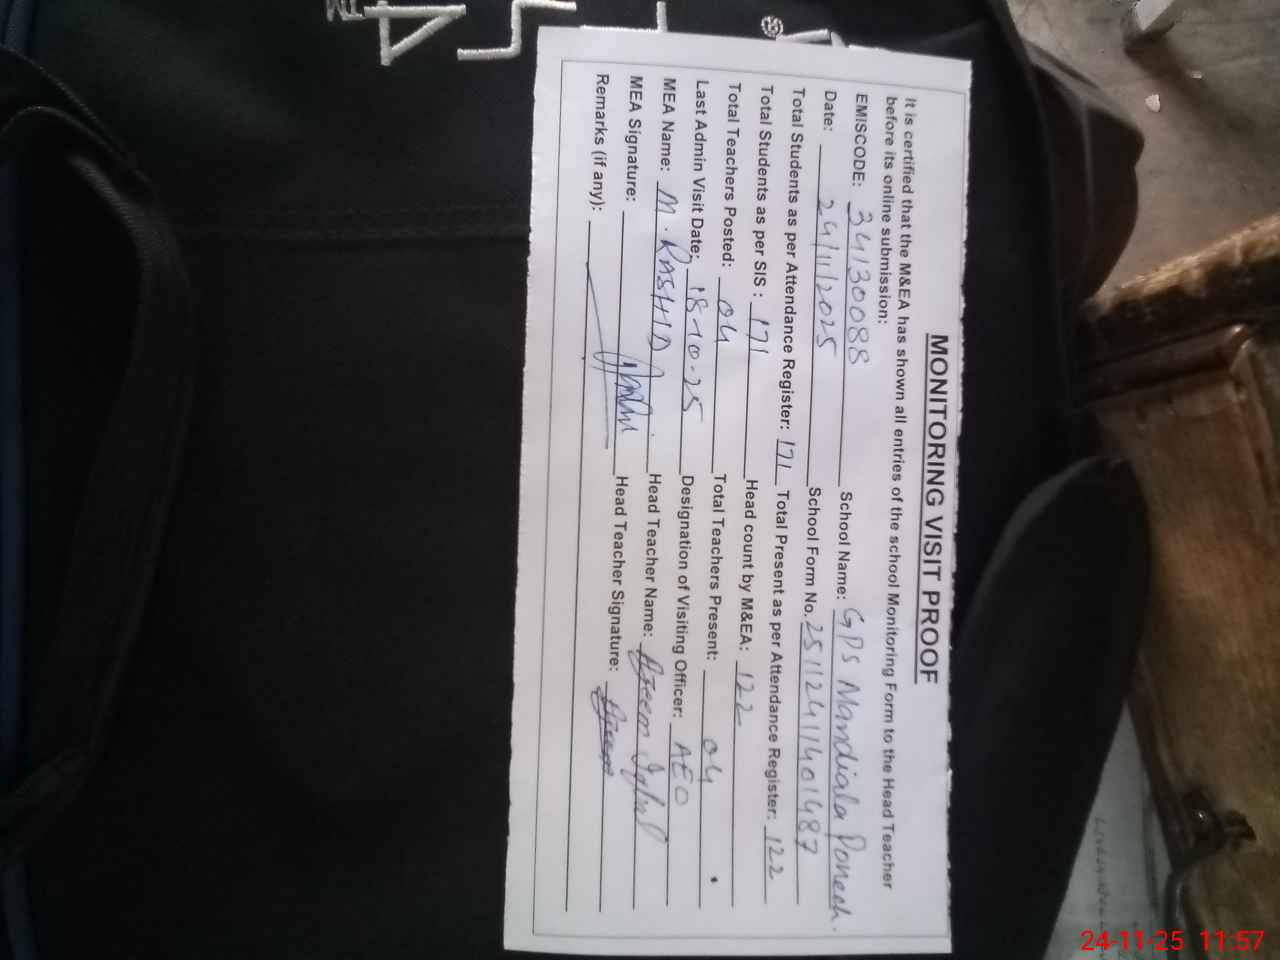 MONITORING VISIT PROOF
It is certified that the M&EA has shown all entries of the school Monitoring Form to the Head Teacher
before its online submission:
EMISCODE: 34130088 School Name: GPS Mandiala Ponech.
Date: 24/11/2025 School Form No. 25112411401487
Total Students as per Attendance Register: 171 Total Present as per Attendance Register: 122
Total Students as per SIS : 171 Head count by M&EA: 122
Total Teachers Posted: 04 Total Teachers Present: 04
Last Admin Visit Date: 18-10-25 Designation of Visiting Officer: AEO
MEA Name: M. RASHID Head Teacher Name: Azeem Iqbal
MEA Signature: Head Teacher Signature:
Remarks (if any):
24-11-25 11:57